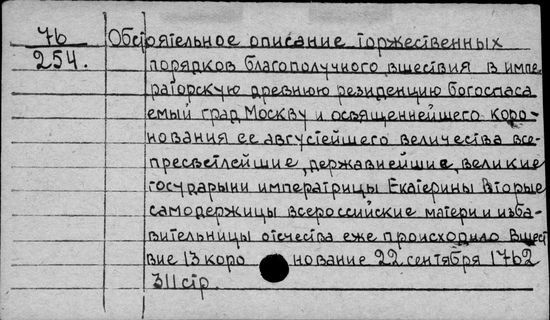 76
254.
Обстоятельное описание торжественных
порядков благополучного вшествия в импе
раторскую древнюю резиденцию богоспаса
емый град Москву и освященнейшего коро-
нования ее августейшего величества все-
пресветлейшие, державнейшие, великие
государыни императрицы Екатерины Вторые
самодержицы всероссийские матери и изба-
вительницы отечества еже происходило Вшест
вие 13 коро нование 22 сентября 1762
311 стр.